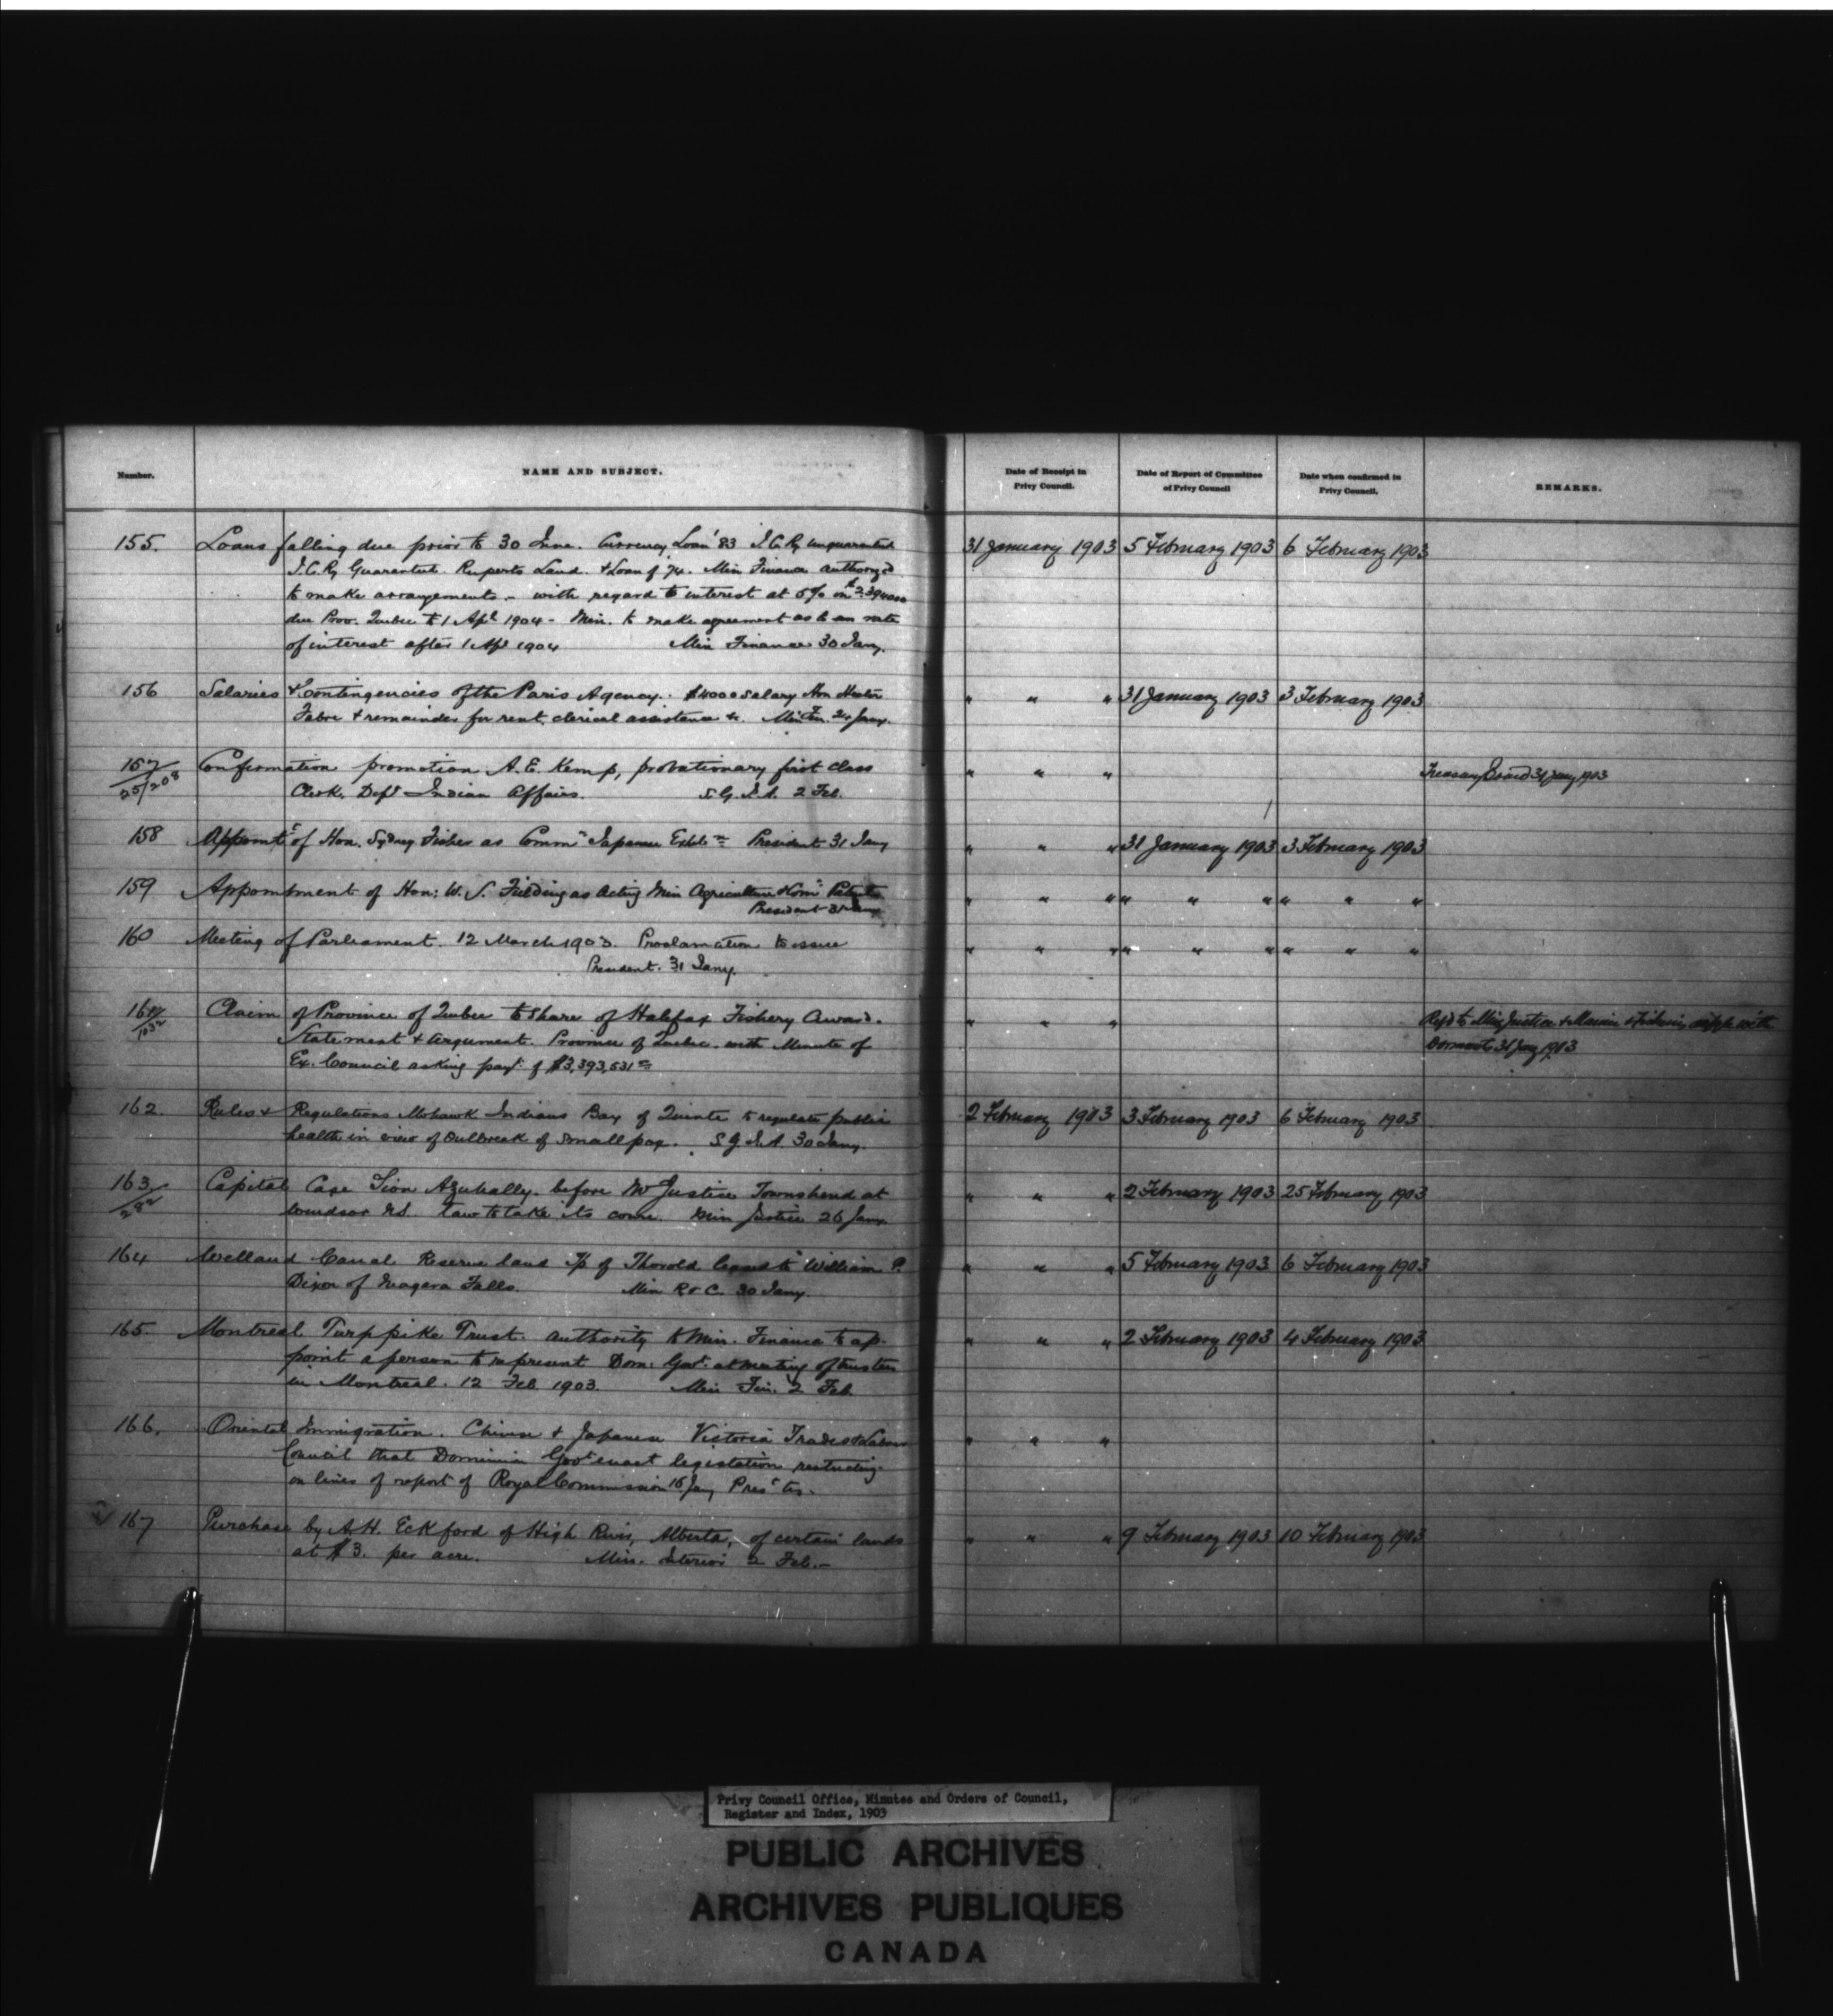 Number.
NAME AND SUBJECT.
Date of Receipt in
Privy Council.
Date of Report of Committee
of Privy Council
Date when confirmed in
Privy Council.
REMARKS.
155. Loans falling due prior to 30 June. Currency Loan '83 I.C.Ry unguaranteed 31 January 1903 5 February 1903 6 February 1903
I.C.Ry Guaranteed. Ruperts Land. & Loan of 74. Min Finance authorized
to make arrangements - with regard to interest at 5% on
due Prov. Quebec to 1 Apl 1904 - Min. to make agreement as to rate
of interest after 1 Apl 1904 Min Finance 30 Jany.
156 Salaries & Contingencies of the Paris Agency. $4000 salary Hon Hector " " " 31 January 1903 3 February 1903
Fabre & remainder for rent, clerical assistance &c. Min Fin. 24 Jany.
157 Confirmation promotion A.E. Kemp, probationary first class " " " Treasury Board 31 Jany 1903
25/208 Clerk. Dept Indian Affairs. S.G.I.A. 2 Feb.
158 Appointt of Hon. Sydney Fisher as Commr Japanese Exhbn President 31 Jany " " " 31 January 1903 3 February 1903
159 Appointment of Hon: W. S. Fielding as Acting Min Agriculture & Comr Patents " " " " " " " " "
President 31 Jany
160 Meeting of Parliament. 12 March 1903. Proclamation to issue " " " " " " " " "
President. 31 Jany.
161 Claim of Province of Quebec to share of Halifax Fishery Award. " " " Refd to Min Justice & Marine & Fisheries with
Statement & argument. Province of Quebec. with Minute of Dormants 31 Jany 1903
Ex. Council asking payt of $3,393,531
162. Rules & Regulations Mohawk Indians Bay of Quinte to regulate public 2 February 1903 3 February 1903 6 February 1903
health in view of outbreak of small pox. S G I A 30 Jany.
163/282 Capital Case Sion Azuhally. before Mr Justice Townshend at " " " 2 February 1903 25 February 1903
Windsor NS. law to take its course. Min Justice 26 Jany
164 Welland Canal Reserve land T/p of Thorold leased to William P. " " " 5 February 1903 6 February 1903
Dixon of Niagara Falls. Min R & C. 30 Jany.
165. Montreal Turnpike Trust. authority to Min. Finance to ap- " " " 2 February 1903 4 February 1903
point a person to represent Dom: Govt. at meeting of trustees
in Montreal. 12 Feb 1903. Min Fin. 2 Feb
166. Oriental Immigration. Chinese & Japanese Victoria Trades & Labour " " "
Council that Dominion Govt enact legislation restricting
on lines of report of Royal Commission 16 Jany
167 Purchase by A.H. Eckford of High River, Alberta, of certain lands " " " 9 February 1903 10 February 1903
at $3. per acre. Min. Interior 2 Feb. -
Privy Council Office, Minutes and Orders of Council,
Register and Index, 1903
PUBLIC ARCHIVES
ARCHIVES PUBLIQUES
CANADA